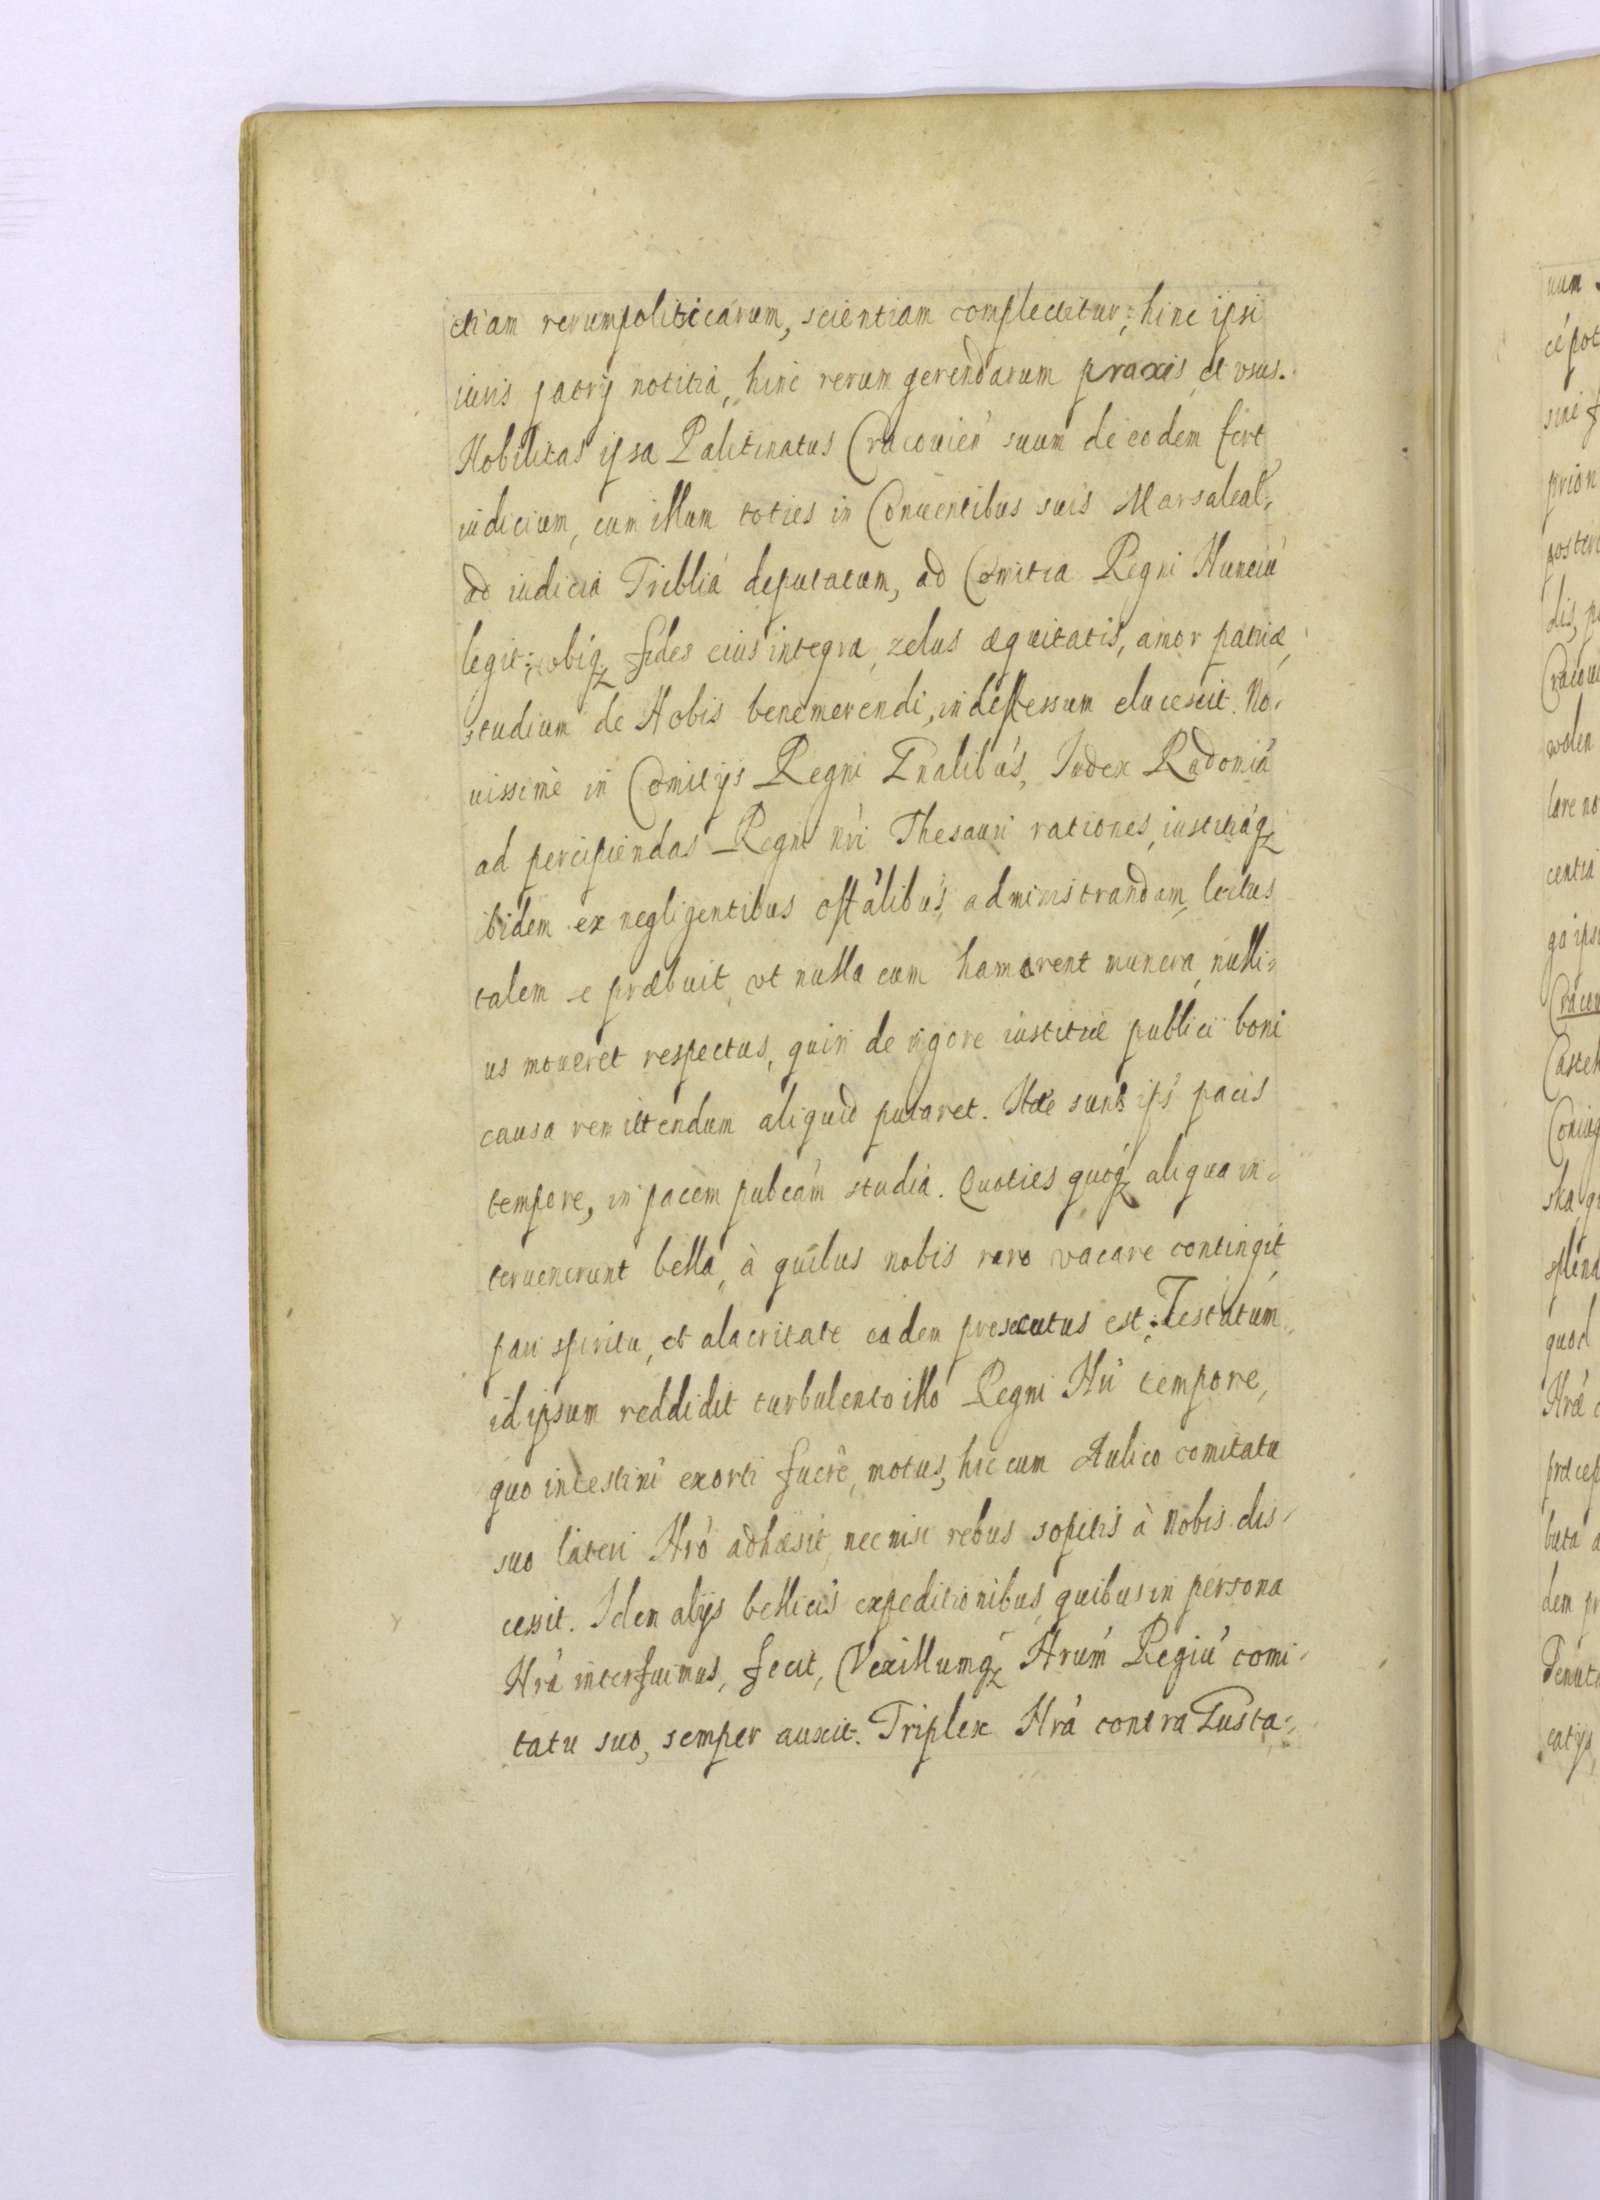 etiam rerumpoliticarum, scientiam complectitur; hinc ipsi
iuris patrij notitia, hinc rerum gerendarum praxis et vsus.
Nobilitas ipsa Palitinatus Cracouień suum de eodem fert
iudicium, cum illum toties in Conuentibus suis Marsaleal,
ad iudicia Triblia deputatum, ad Comitia Regni Nunciú
legit; vbiq fides eius integra, zelus æquitatis, amor patriæ,
studium de Nobis benemerendi, indefessum elucescit. No-
uissimè in Comitijs Regni Pnalibús, Iudex Radomiá
ad percipiendas Regni nri Thesauri rationes, iustitiaq
ibidem ex negligentibus offálibus administrandam, lectus
talem se præbuit, vt nulla eum hamarent munera, nulli-
us moueret respectus, quin de rigore iustitiæ publici boni
causa remittendum aliquid putaret. Hæ sunt ips pacis
tempore, in pacem pubcám studia. Quoties quoq aliqua in-
teruenerunt bella, à quibus nobis raro vacare contingit
pari spiritu, et alacritate eadem prosecutus est; Testatúm
id ipsum reddidit turbulento illo Regni Nri tempore,
quo intestini exorti fuerê, motus, hic cum Aulico comitatu
suo lateri Nró adhæsit, nec nisi rebus sopitis à Nobis dis-
cessit. Idem alijs bellicis expeditionibus, quibus in persona
Nrá interfuimus, fecit, Vexillumq Nrúm Regiú comi-
tatu suo, semper auxit. Triplex Nrá contra Gusta-